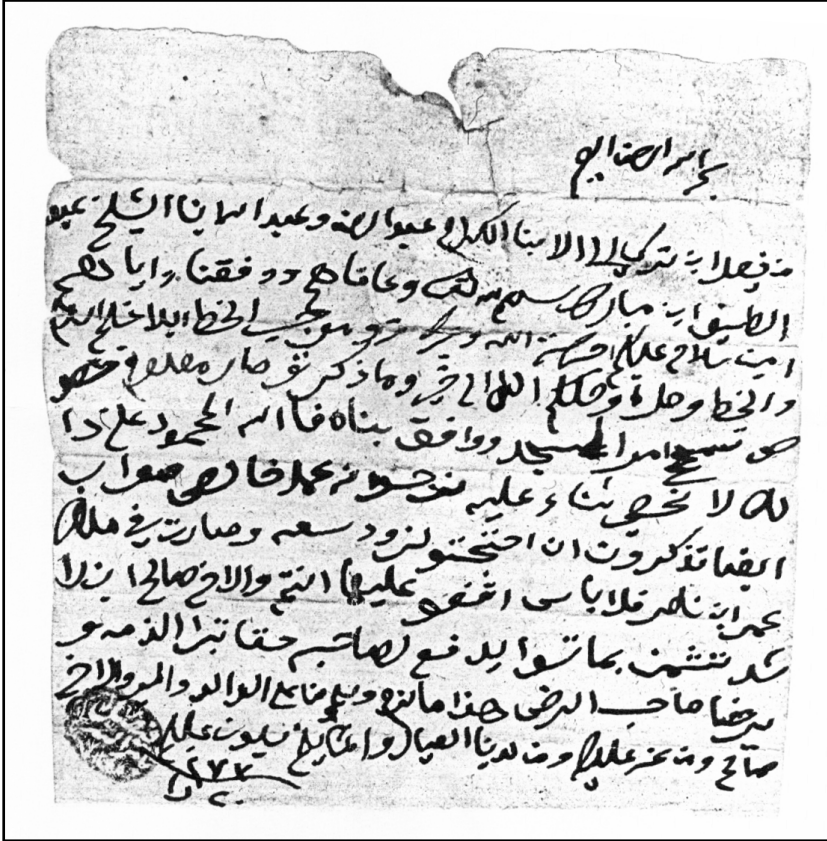 بسم الله الرحمن الرحيم
من فيصل ابن تركي الى الابنا الكرام عبدالرحمن وعبدالله ابنا الشيخ عبد
اللطيف ابن مبارك سلمهم الله تعالى وعافاهم ووفقنا واياهم
امين سلام عليكم ورحمة الله وبركاته وموجب الخط ابلاغكم السلام
والخط وصل وصلكم الله الى خير وما ذكرتو صار معلوم
من امر المسجد ووافق بناه فالله المحمود على ذا
لك لا نحصي ثناء عليه عمله خالص صواب
ايضا تذكرون ان احتجتو لزود سعه وصارت في ملك
عمر ابن ناصر فلا باس اتفقو عليها انتم والاخ صالح ابن را
شد تثمن بما تسوا يدفع لصاحبه حقه تبرا الذمه و
يرضا صاحب الارض هذا ما لزم وسلم لنا على الوالد والاخ
صالح ومن عز عليكم ومن لدينا العيال والمشايخ يسلمون عليكم
١٢٧٣